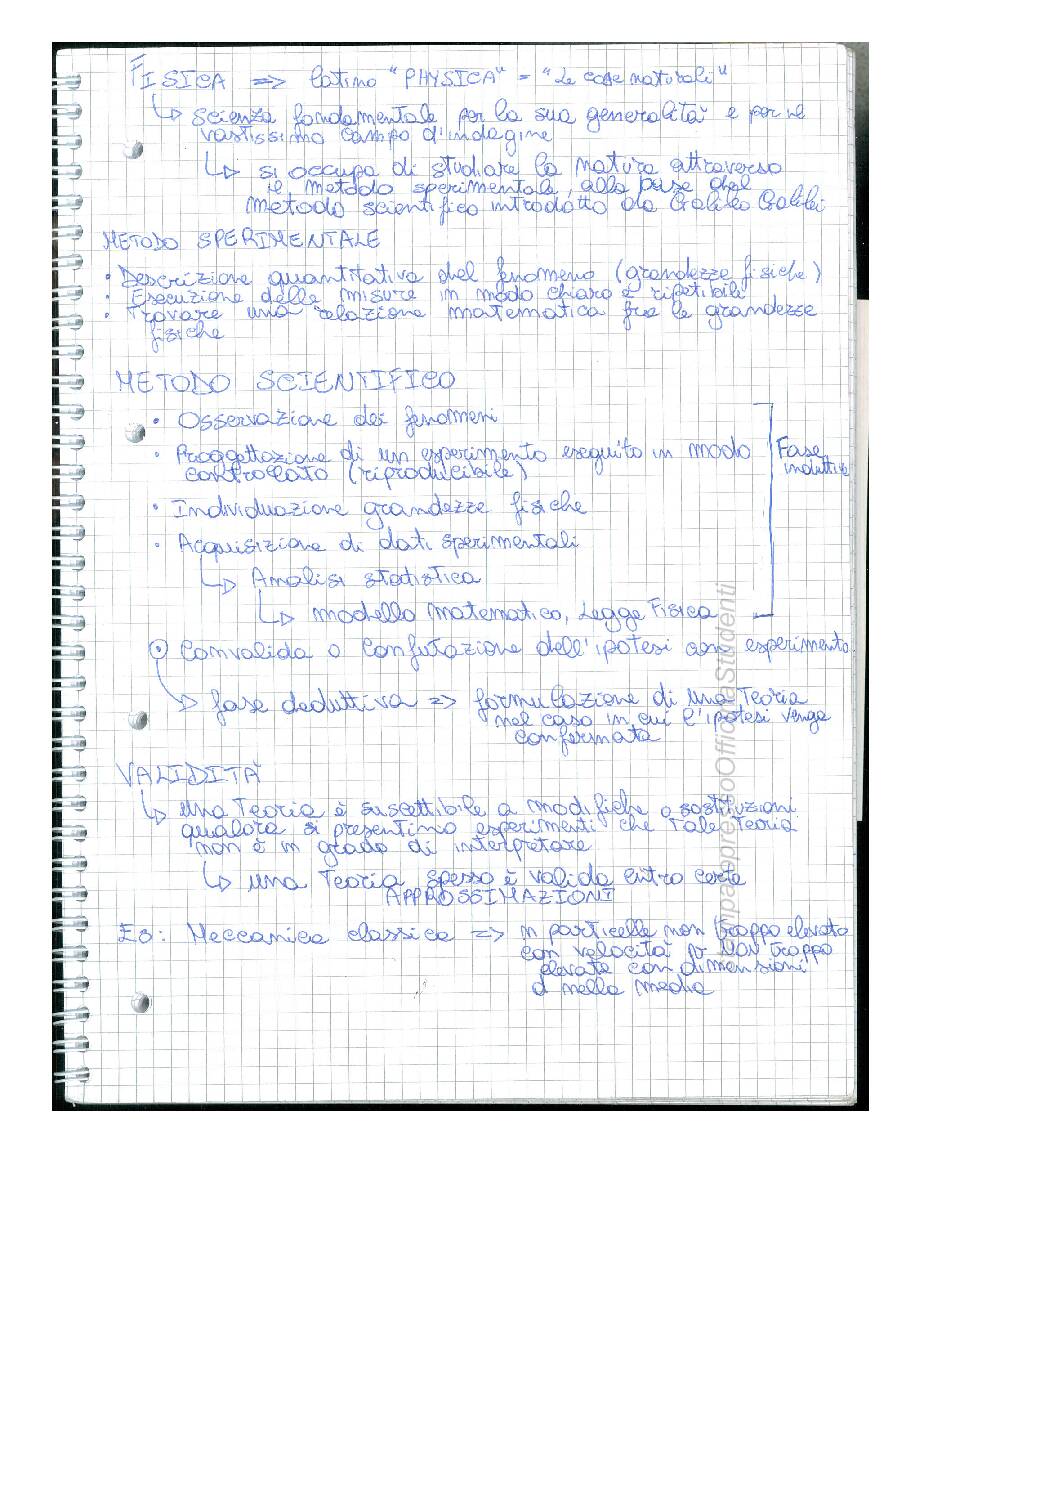 FISICA => latino "PHYSICA" = "Le cose naturali"
scienza fondamentale per la sua generalità e per il
vastissimo campo d'indagine
si occupa di studiare la natura attraverso
il metodo sperimentale, alla base del
metodo scientifico introdotto da Galileo Galilei
METODO SPERIMENTALE
• Descrizione quantitativa del fenomeno (grandezze fisiche)
• Esecuzione delle misure in modo chiaro e ripetibile
• Trovare una relazione matematica fra le grandezze
fisiche
METODO SCIENTIFICO
• Osservazione dei fenomeni
• Proggettazione di un esperimento eseguito in modo
controllato (riproducibile)
Fase
induttiva
• Individuazione grandezze fisiche
• Acquisizione di dati sperimentali
Analisi statistica
modello matematico, Legge Fisica
Convalida o Confutazione dell'ipotesi con esperimento
fase deduttiva => formulazione di una Teoria
nel caso in cui l'ipotesi venga
confermata
VALIDITÀ
una Teoria è suscettibile a modifiche o sostituzioni
qualora si presentino esperimenti che Tale Teoria
non è in grado di interpretare
una Teoria spesso è valida entro certe
APPROSSIMAZIONI
Es: Meccanica classica => in particelle non troppo elevate
con velocità v non troppo
elevate con dimensioni
d nella media
StampapressoOfficinaStudenti